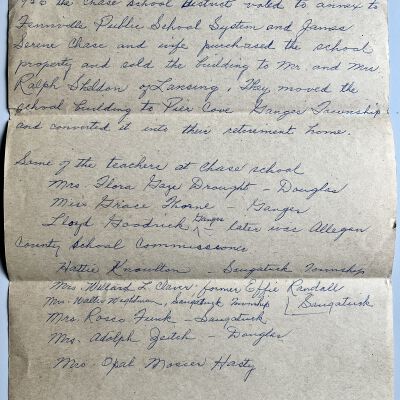 the Chase School District voted to annex to
Fennville Public School System and James
Serene Chase and wife purchased the school
property and sold the building to Mr. and Mrs
Ralph Sheldon of Lansing, They moved the
school building to Pier Cove Ganges Township
and converted it into their retirement home.
Some of the teachers at Chase school
Mrs. Flora Gaze Drought - Douglas
Miss Grace Thorne - Ganges
Lloyd Goodrich Ganges - later was Allegan
County School Commissioner
Hattie Knowlton - Saugatuck Township
Mrs. Willard L. Claver former Effie Randall
Mrs. Walter Wightman, Saugatuck Township Saugatuck
Mrs. Rosco Funk - Saugatuck
Mrs. Adolph - Douglas
Mrs. Opal Mosier Hasty